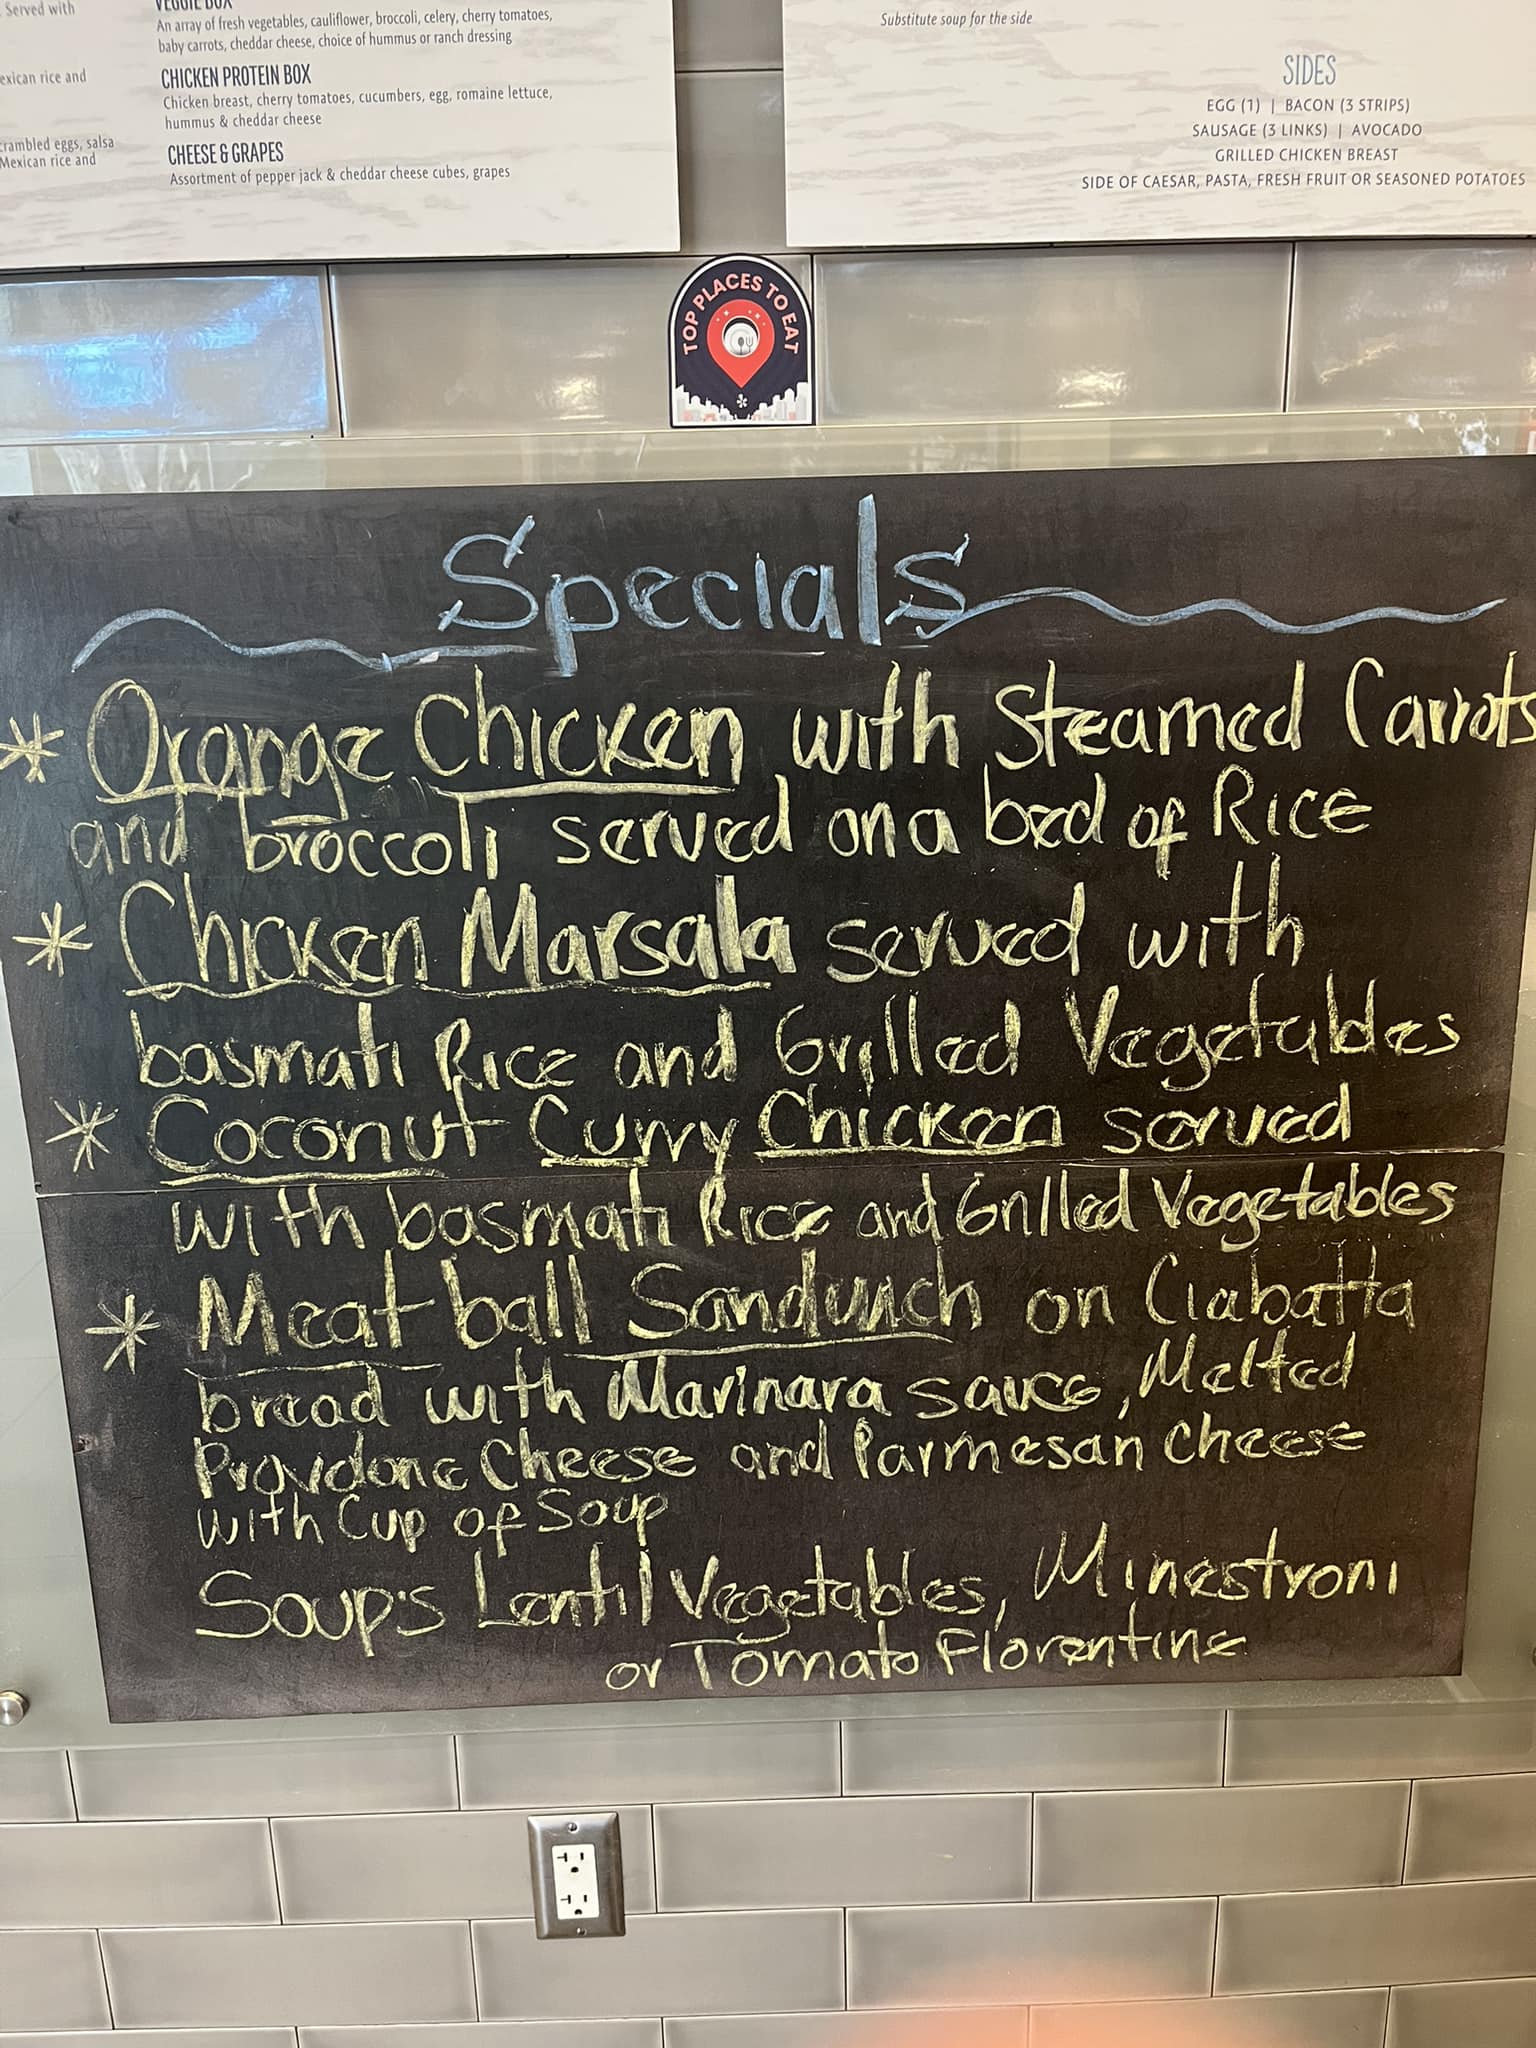 Served with
VEGGIE BOX
An array of fresh vegetables, cauliflower, broccoli, celery, cherry tomatoes,
baby carrots, cheddar cheese, choice of hummus or ranch dressing
exican rice and
CHICKEN PROTEIN BOX
Chicken breast, cherry tomatoes, cucumbers, egg, romaine lettuce,
hummus & cheddar cheese
crambled eggs, salsa
Mexican rice and
CHEESE & GRAPES
Assortment of pepper jack & cheddar cheese cubes, grapes
Substitute soup for the side
SIDES
EGG (1) | BACON (3 STRIPS)
SAUSAGE (3 LINKS) | AVOCADO
GRILLED CHICKEN BREAST
SIDE OF CAESAR, PASTA, FRESH FRUIT OR SEASONED POTATOES
TOP PLACES TO EAT
Specials
* Orange Chicken with Steamed Carrots
and broccoli served on a bed of Rice
* Chicken Marsala served with
basmati Rice and Grilled Vegetables
* Coconut Curry Chicken served
with basmati Rice and Grilled Vegetables
* Meat ball Sandwich on Ciabatta
bread with Marinara sauce, Melted
Provdone Cheese and Parmesan cheese
with Cup of Soup
Soup's Lentil Vegetables, Minestroni
or Tomato Florentine